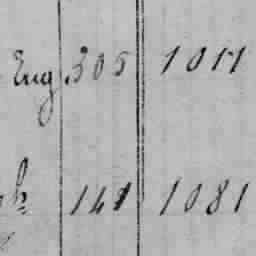 Eng 305 1011
141 1081